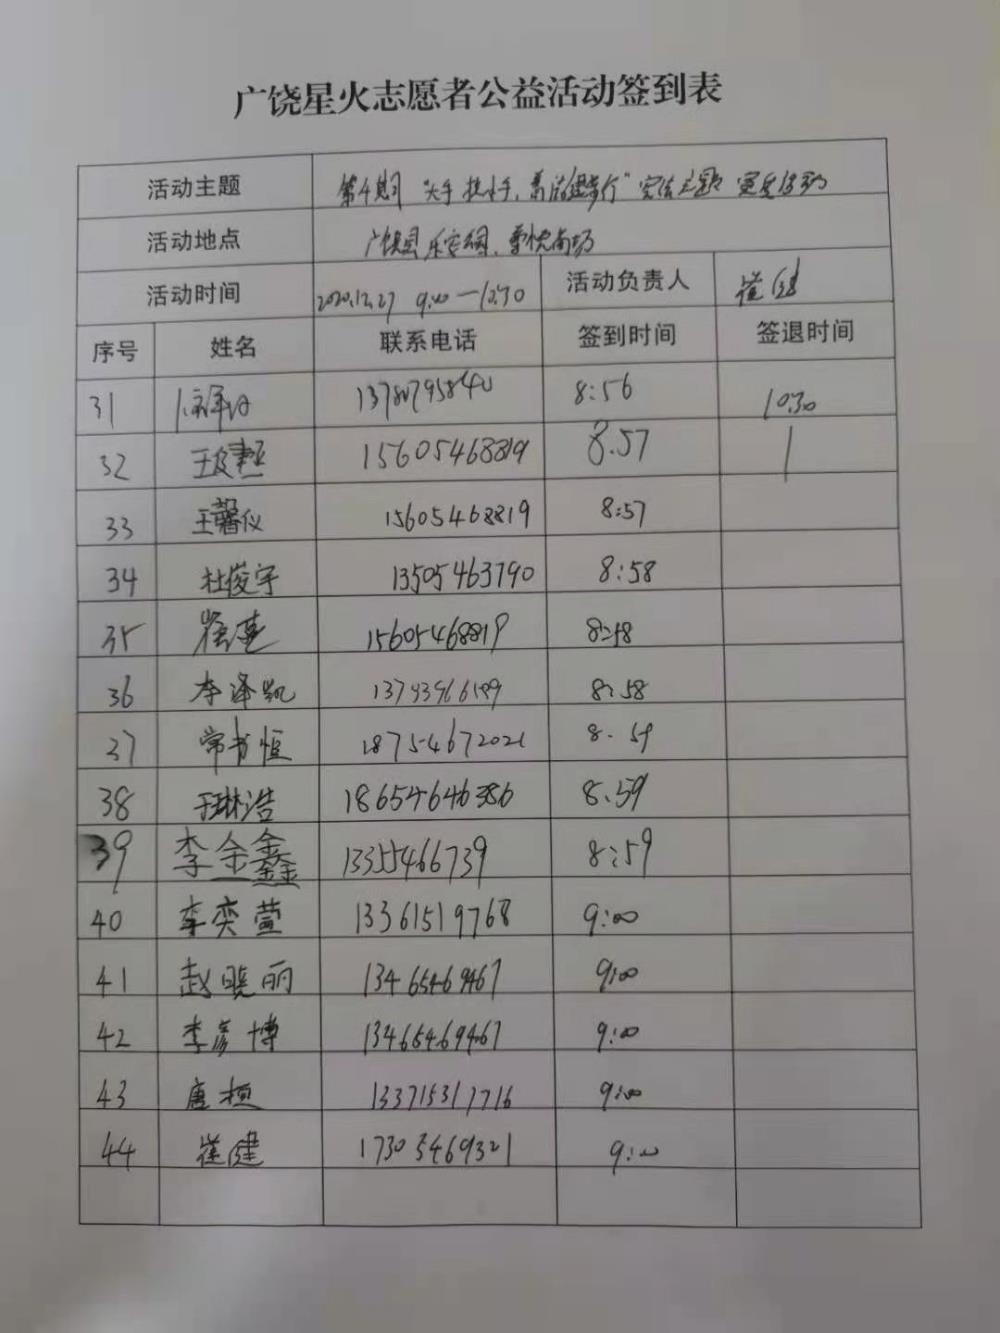 广饶星火志愿者公益活动签到表
活动主题 第4期 "大手拉小手,
活动地点 广饶县乐安公园、
活动时间 2020.12.27 9:00—10:30 活动负责人 崔健
序号 姓名 联系电话 签到时间 签退时间
31 8:56 10:30
32 15605468819 8.57
33 王馨仪 15605468819 8:57
34 杜俊宇 13505463790 8:58
35 15605468819 8:58
36 李泽凯 8:58
37 常书恒 18754672021 8.59
38 于琳浩 18654646386 8.59
39 李金鑫 13355466739 8:59
40 李奕萱 13361519768 9:00
41 赵晓丽 13465469467 9:00
42 李彦博 13465469467 9:00
43 唐桓 133715317716 9:00
44 崔健 17305469321 9:00